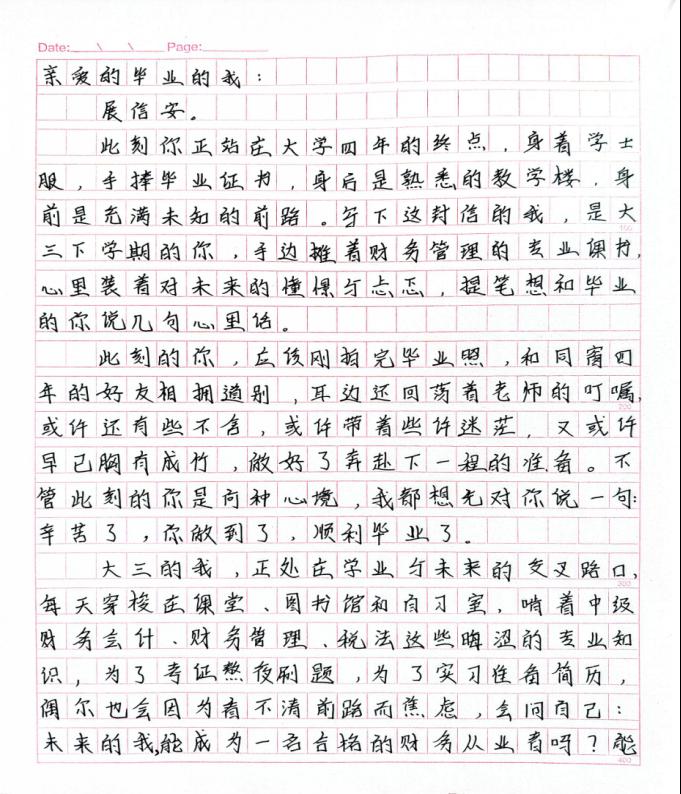 Date: \ \ Page:
亲爱的毕业的我：
展信安。
此刻你正站在大学四年的终点，身着学士
服，手捧毕业证书，身后是熟悉的教学楼，身
前是充满未知的前路。写下这封信的我，是大
100
三下学期的你，手边摊着财务管理的专业课书，
心里装着对未来的憧憬与忐忑，提笔想和毕业
的你说几句心里话。
此刻的你，应该刚拍完毕业照，和同窗四
年的好友相拥道别，耳边还回荡着老师的叮嘱，
200
或许还有些不舍，或许带着些许迷茫，又或许
早已胸有成竹，做好了奔赴下一程的准备。不
管此刻的你是何种心境，我都想先对你说一句：
辛苦了，你做到了，顺利毕业了。
大三的我，正处在学业与未来的交叉路口，
300
每天穿梭在课堂、图书馆和自习室，啃着中级
财务会计、财务管理、税法这些晦涩的专业知
识，为了考证熬夜刷题，为了实习准备简历，
偶尔也会因为看不清前路而焦虑，会问自己：
未来的我，能成为一名合格的财务从业者吗？能
400